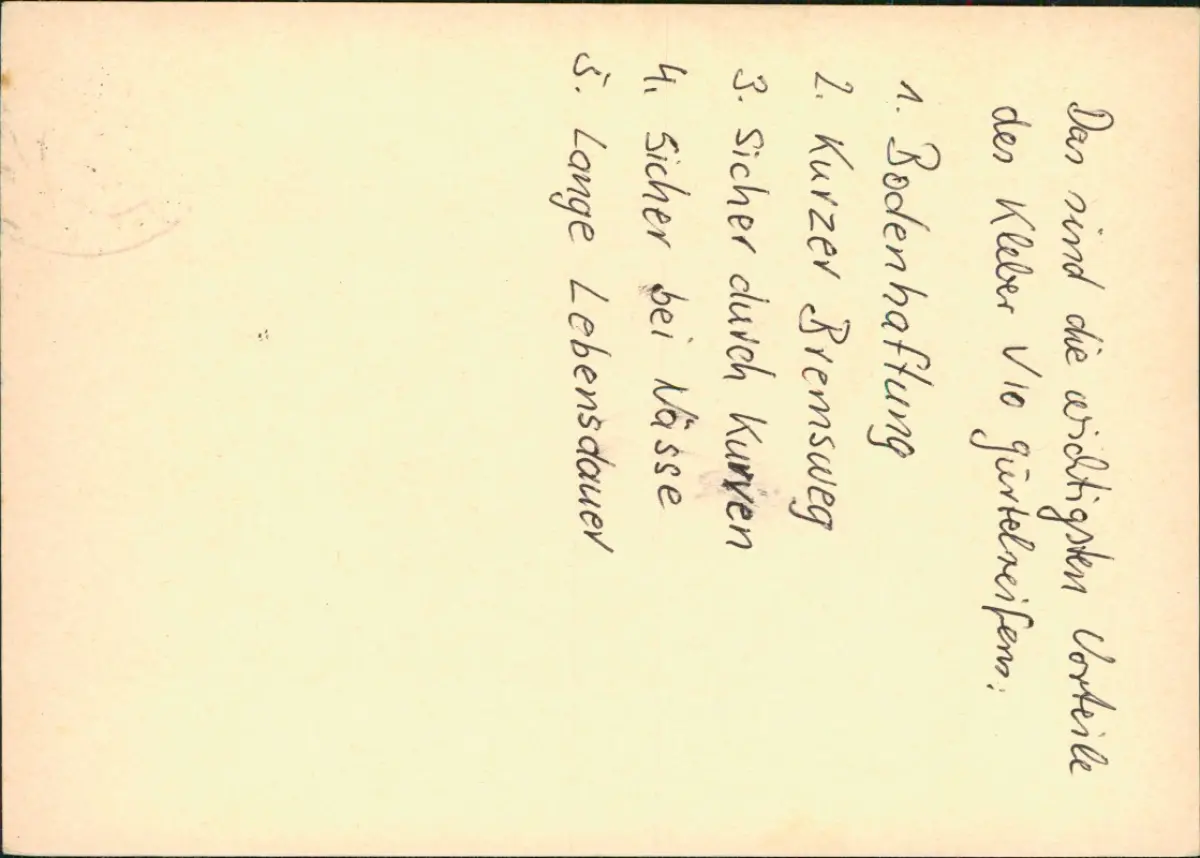 Das sind die wichtigsten Vorteile
des Kleber V10 Gürtelreifens:
1. Bodenhaftung
2. Kurzer Bremsweg
3. Sicher durch Kurven
4. Sicher bei Nässe
5. Lange Lebensdauer